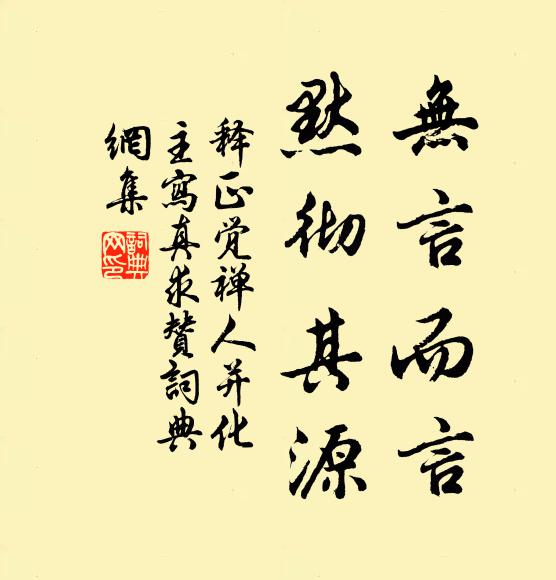 無言而言
默彻其源
释正觉禅人并化
主寫真求赞詞典
網集
詞典
网印